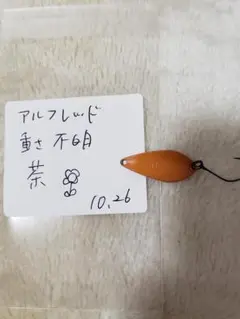 アルフレッド
重さ 不明
茶
10.26